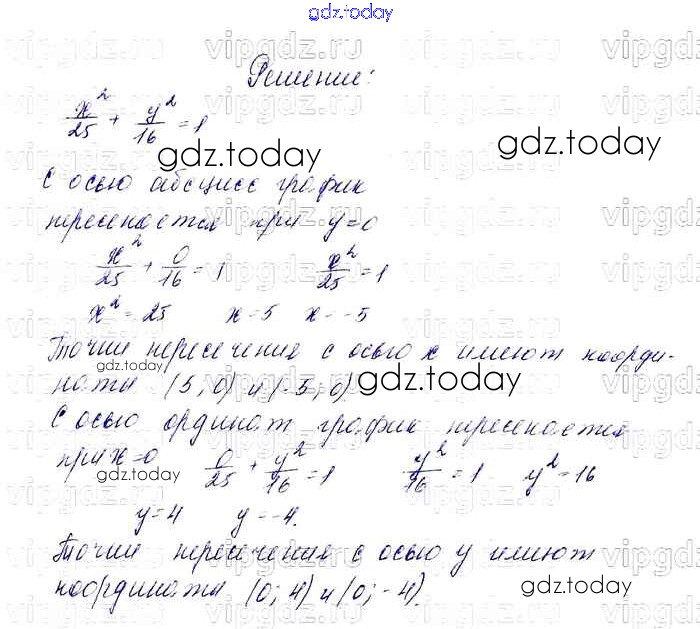 gdz.today
vipgdz.ru vipgdz.ru vipgdz.ru vipgdz.ru
Решение:
x²/25 + y²/16 = 1
gdz.today gdz.today
С осью абсцисс график
пересекается при y=0
x²/25 + 0/16 = 1 x²/25 = 1
x² = 25 x=5 x=-5
Точки пересечения с осью x имеют коорди-
наты (5; 0) и (-5; 0) gdz.today
С осью ординат график пересекается
при x=0 0/25 + y²/16 = 1 y²/16 = 1 y²=16
gdz.today
y=4 y=-4.
Точки пересечения с осью y имеют
координаты (0; 4) и (0; -4).
gdz.today